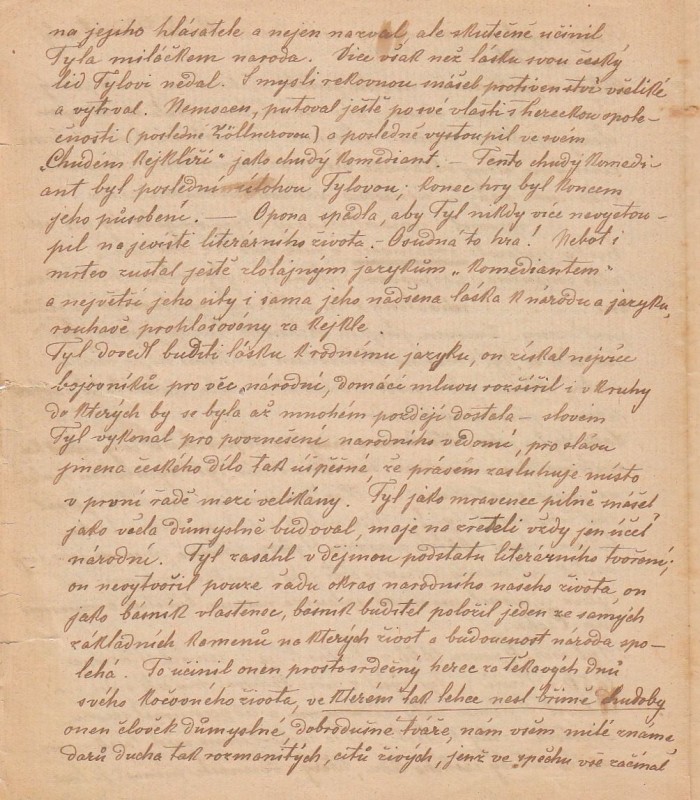 na jejího hlásatele a nejen nazval, ale skutečně učinil
Tyla miláčkem naroda. Více však než lásku svou český
lid Tylovi nedal. S myslí rekovnou snášel protivenství všeliké
a vytrval. Nemocen, putoval ještě po své vlasti s hereckou spole-
čností (posledně Zöllnerovou) a posledně vystoupil ve svém
„Chudém kejklíři“ jako chudý komediant. – Tento chudý komedi-
ant byl poslední úlohou Tylovou; konec hry byl koncem
jeho působení. — Opona spadla, aby Tyl nikdy více nevystou-
pil na jeviště literárního života. – Osudná to hra! Neboť i
mrtev zustal ještě zlolajným jazykům „komediantem“
a největší jeho city i sama jeho nadšena láska k národu a jazyku,
rouhavě prohlašovány za kejkle.
Tyl dovedl buditi lásku k rodnému jazyku, on získal nejvíce
bojovníků pro věc národní, domácí mluvu rozšířil i v kruhy
do kterých by se byla až mnohém později dostala – slovem
Tyl vykonal pro povznešení narodního vědomí, pro slávu
jmena českého dílo tak úspěšné, že právem zasluhuje místo
v první řadě mezi velikány. Tyl jako mravenec pilně snášel
jako včela důmyslně budoval, maje na zřeteli vždy jen účel
národní. Tyl zasáhl v dějinou podstatu literárního tvoření;
on nevytvořil pouze řadu okras narodního našeho života, on
jako básník vlastenec, básník buditel položil jeden ze samých
základních kamenů na kterých život a budoucnost naroda spo-
lehá. To učinil onen prostosrdečný herec za těkavých dnů
svého kočovného života, ve kterém tak lehce nesl břímě chudoby
onen člověk důmyslné, dobrodušné tváře, nám všem milé zname
darů ducha tak rozmanitých, citů živých, jenž ve spěchu vše začínal